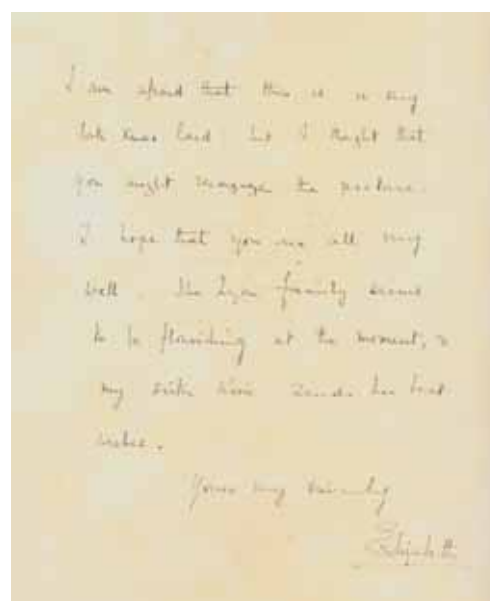 I am afraid that this is a very
late Xmas Card but I thought that
you might recognize the picture.
I hope that you are all very
well. The Lyon family seems
to be flourishing at the moment, &
my sister Rose sends her best
wishes.
Yours very sincerely
Elizabeth